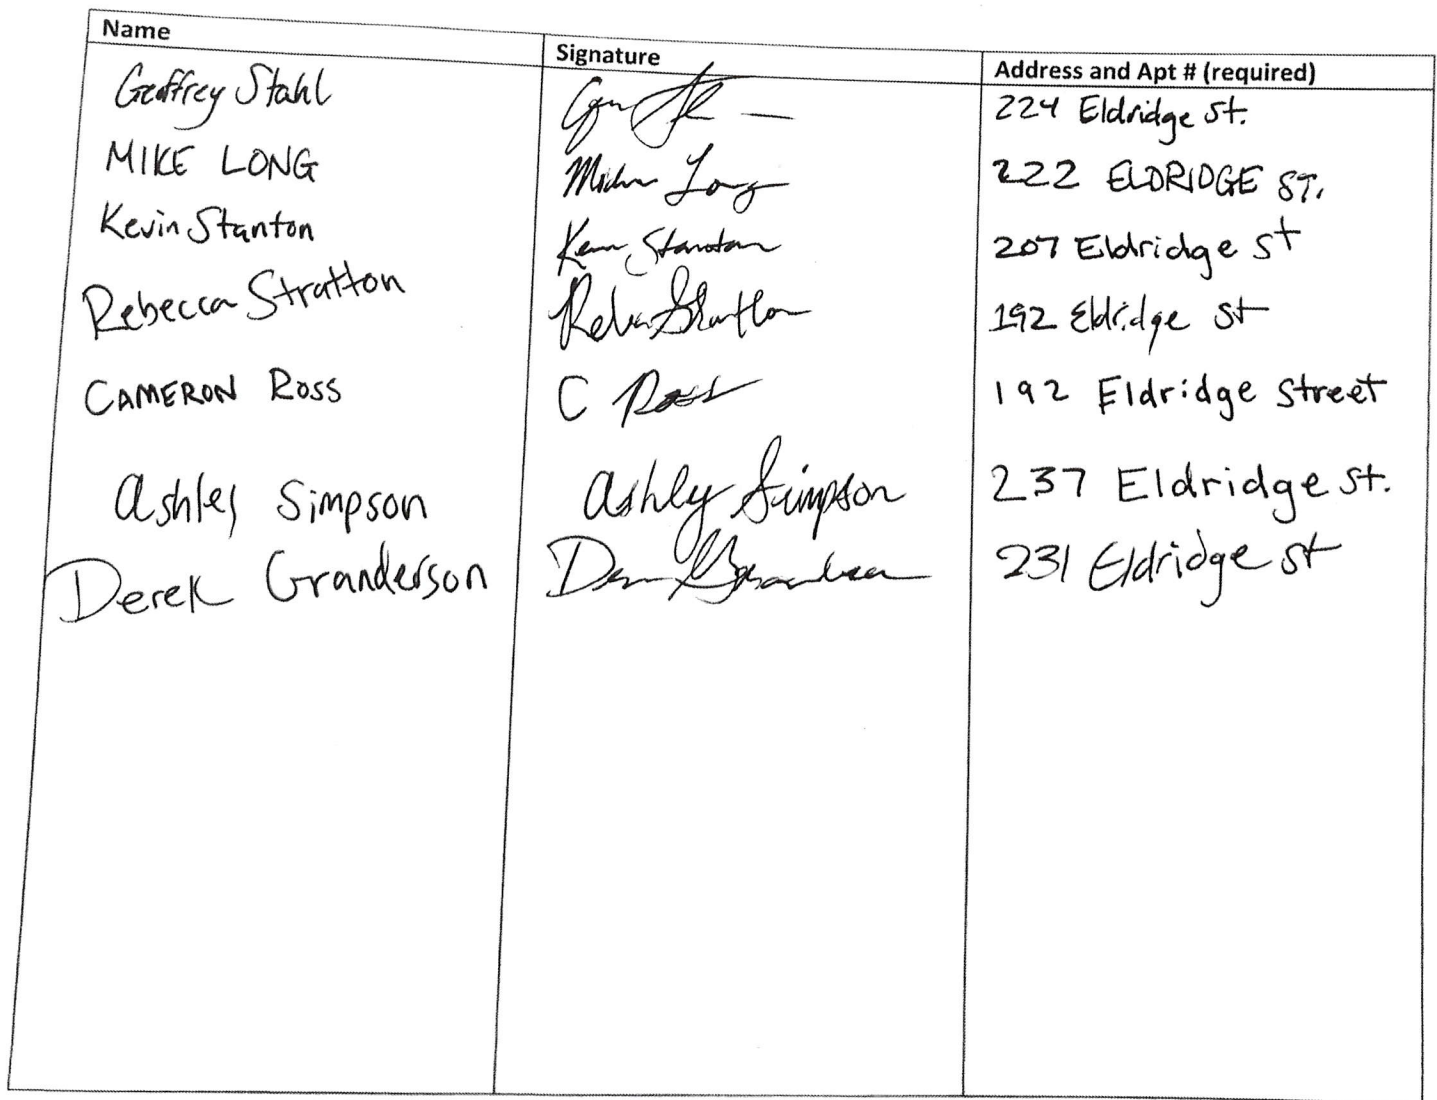 Name Signature Address and Apt # (required)
Geoffrey Stahl 224 Eldridge St.
MIKE LONG Long 222 ELDRIDGE ST.
Kevin Stanton Stanton 207 Eldridge St
Rebecca Stratton Stratton 192 Eldridge St
CAMERON ROSS C Ross 192 Eldridge Street
Ashley Simpson Ashley Simpson 237 Eldridge St.
Derek Granderson 231 Eldridge St